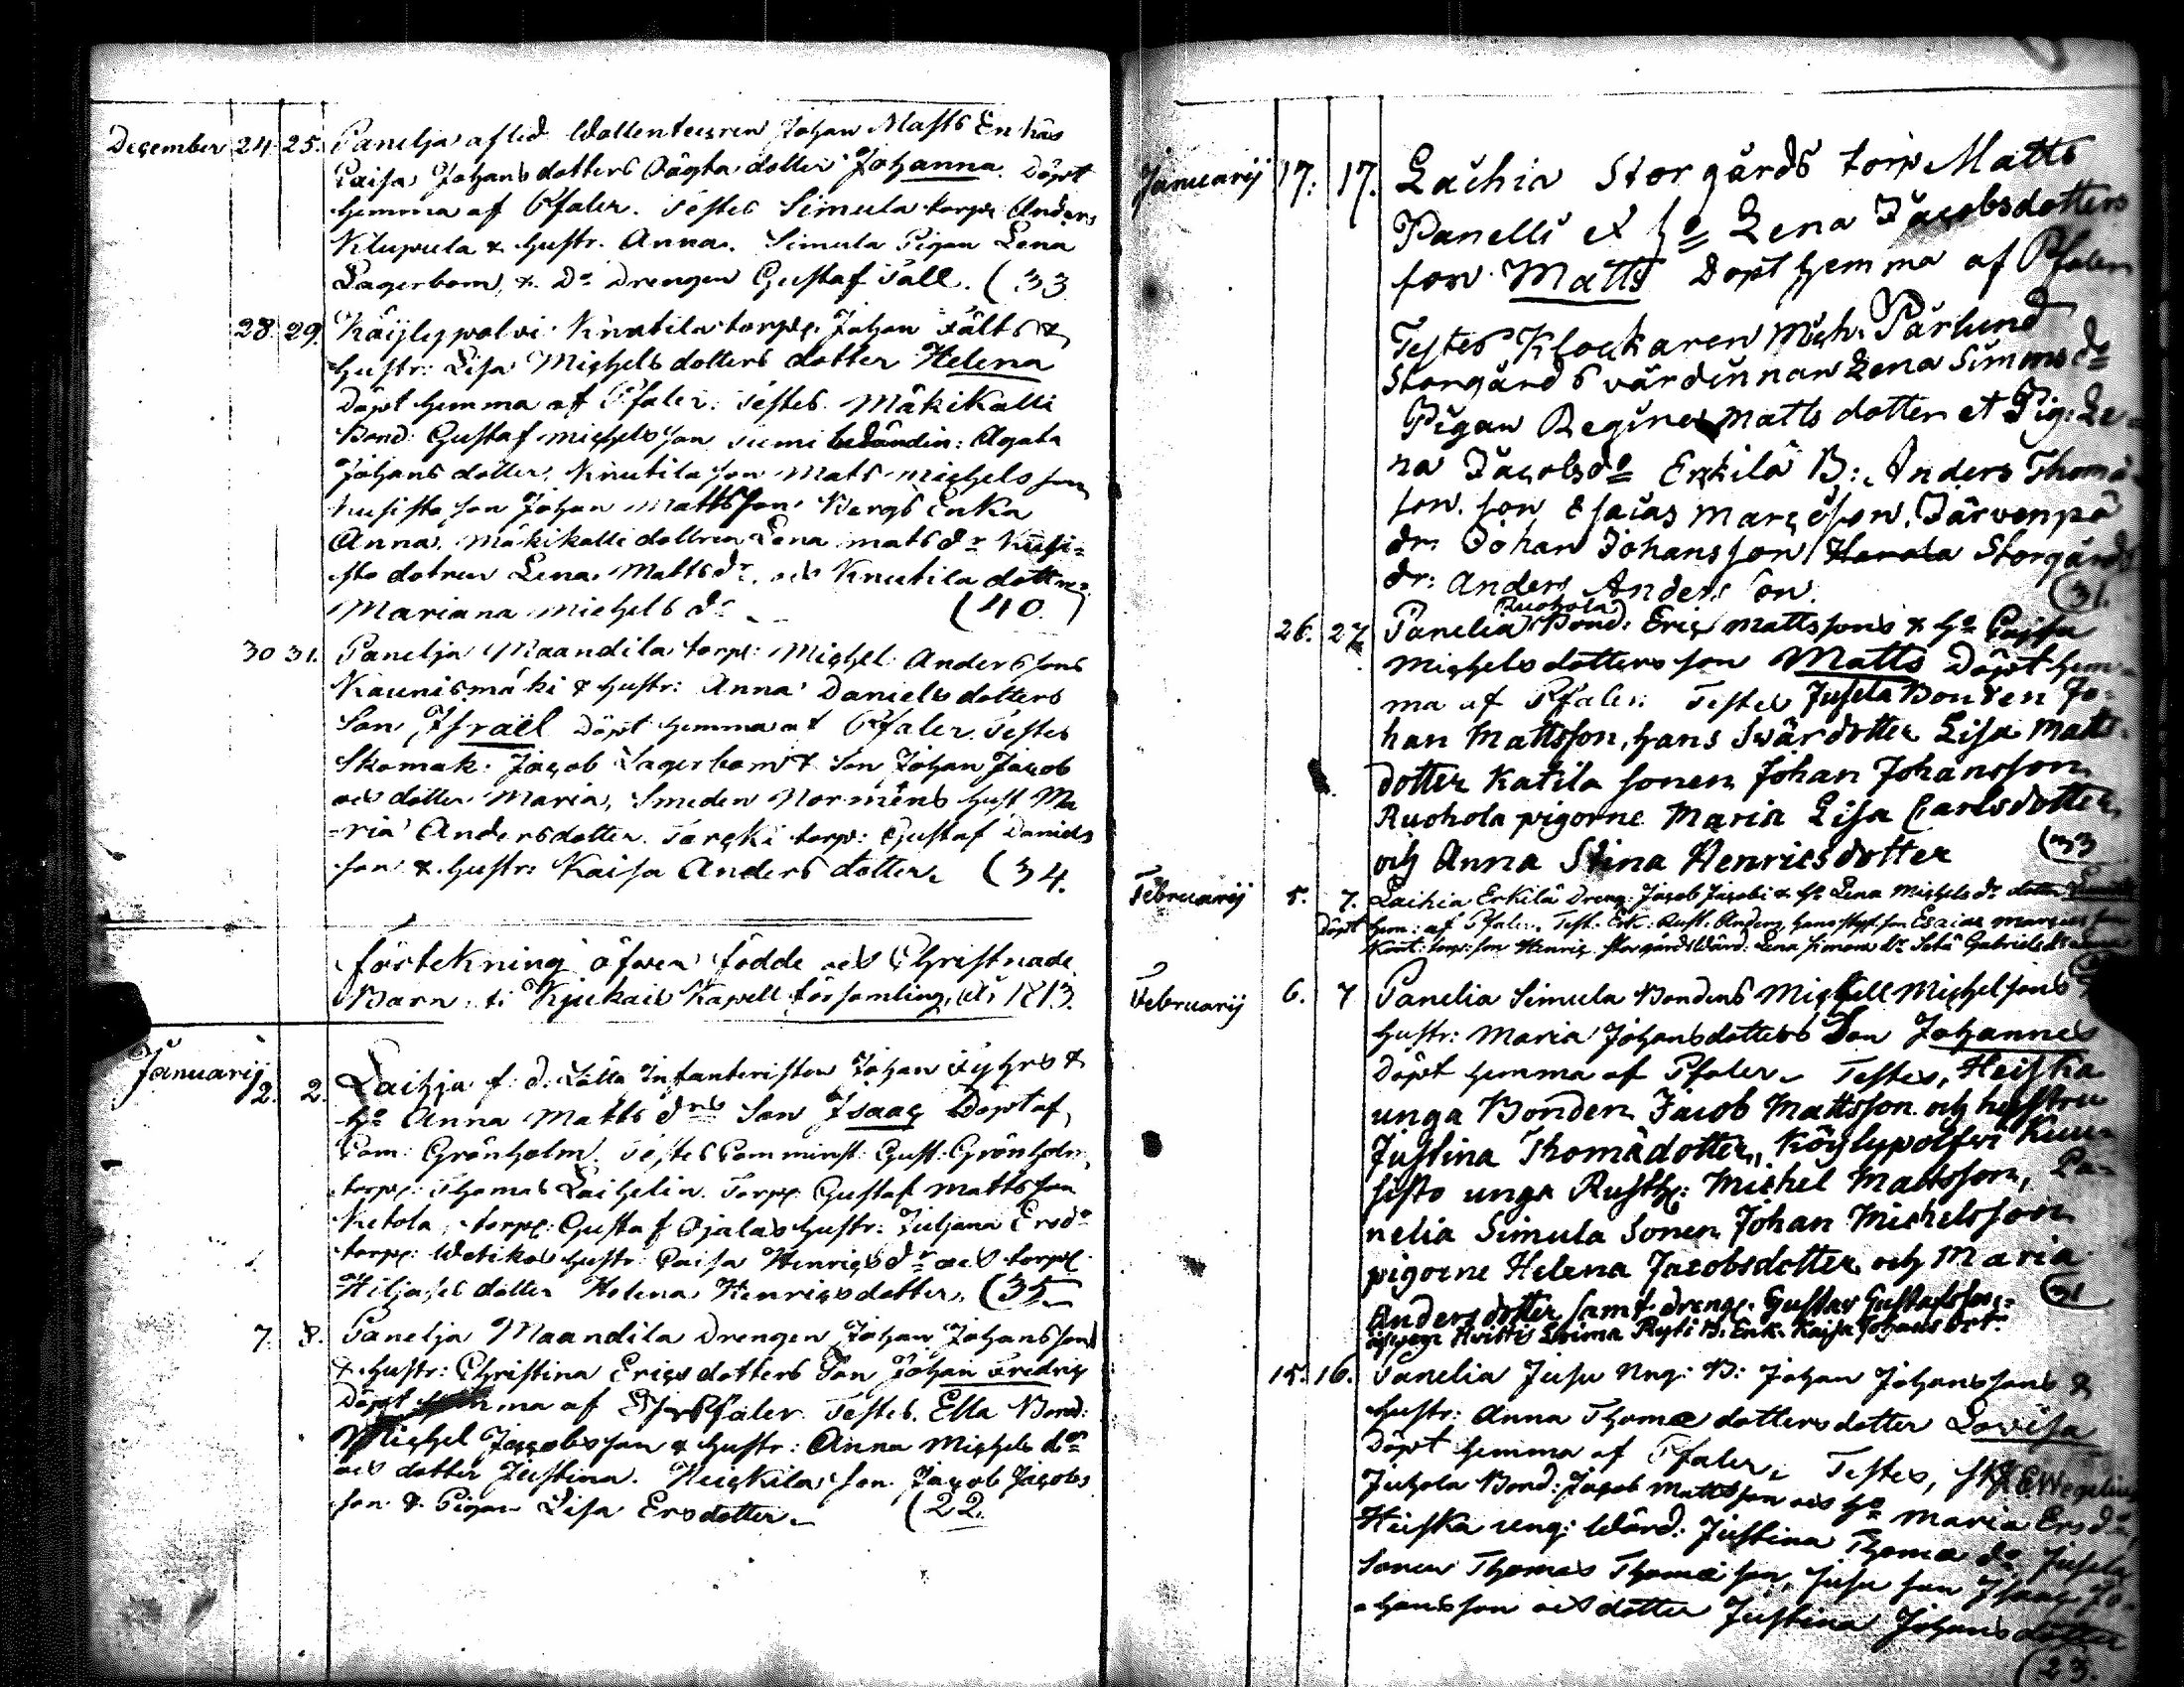 December 24. 25. Panelja afled. Johan Matts Enkas
Caisa Johansdotters dotter Johanna. Döpt
hemma af Pfaler. Testes Simula torp: Anders
Klupula & hustr. Anna. Simula Pigan Lena
Lagerbom, & Do Drengen Gustaf Tall. (33
28. 29. Köylypolvi Knutila torp: Johan Fälts &
hustr: Lisa Michelsdotters dotter Helena
Döpt hemma af Pfaler: Testes Mäkikalli
Bond: Gustaf Michelsson Agata
Johans dotter, Knutila son Mats Michelsson
Kusisto son Johan Mattsson Bergs Enka
Anna. Mäkikalli dottren Lena Matsdr Kusi=
sto dotren Lena Mattsdr. och Knutila dottren
Mariana Michelsdr (40.
30 31. Panelja Maandila torp: Michel Anderssons
Kaunismäki & hustr: Anna Danielsdotters
Son Israel Döpt hemma af Pfaler. Testes
Skomak: Jacob Lagerbom & Son Johan Jacob
och dotter Maria, Smeden Normens hust Ma
=ria Andersdotter. torp: Gustaf Daniels
son & hustr: Kaisa Anders dotter. (34.
förtekning öfwer födde och Christnade
Barn i Kjukais Kapell församling, År 1813.
Januarij 2. 2. Laihja f. d. Lätta Infanteristen Johan &
ho Anna Matts drs Son Isaac Döpt af
Com: Grönholm. Testes Comminist: Gust: Grönholm,
torp: Thomas Laihelin. Torp: Gustaf Mattsson
Ketola, torp: Gustaf Ojalas hustr: Juljana Ersdr
torp: hustr Caisa Henricsdr och torp:
dotter Helena Henricsdotter. (35
7. 8. Panelja Maandila Drengen Johan Johanssons
& hustr: Christina Ericsdotters Son Johan Fredric
Döpt hemma af Pfaler. Testes. Ella Bond:
Michel Jacobsson & hustr: Anna Michelsdr
och dotter Justina. Heickilas son Jacob Jacobs
son & Pigan Lisa Ersdotter. (22.
Januarij 17. 17. Laihia Storgårds torp Matts
Panelli et ho Lena Jacobsdotters
son Matts Döpt hemma af Pfaler
Testes Klockaren Mich. Pärlund
Storgårds värdinnan Lena Simmsdr
Pigan Regina Matts dotter et Pig: Le=
na Jacobsdr Erkilä B: Anders Thomæ
son. son Esaias Marcusson. Järvenpä
dr. Johan Johansson Storgårds
dr: Anders Andersson. (31.
Ruohola
26. 27 Panelia Bond: Eric Mattssons & ho Cajsa
Michelsdotters son Matts Döpt hem=
ma af Pfaler. Testes Jusela Bonden Jo=
han Mattsson, hans Svärdotter Lisa Matts
dotter Katila sonen Johan Johansson
Ruohola pigorne Maria Lisa Carlsdotter
och Anna Stina Henricsdotter (33
Februarij 5. 7. Laihia Erkilä Dreng: Jacob Jacobi & ho Lena Michelsdr dotter
Döpt hem: af Pfaler. Test: Erk: Rust: Anders, hans styfson Esaias Marcusson
torp: son Henric Storgårds Värd: Lena Simonsdr Gabrielsdr
Februarij 6. 7 Panelia Simula Bondens Michell Michelssons
hustr: Maria Johansdotters Son Johannes
Döpt hemma af Pfaler. Testes, Heiska
unga Bonden Jacob Mattsson och hustru
Justina Thomädotter, Köylypolfwi Kuu=
sisto unga Rusth: Michel Mattsson, Pa=
nelia Simula Sonen Johan Michelsson
pigorne Helena Jacobsdotter och Maria
Andersdotter samt dreng: Gustav Gustafsson (31
Loima Enk: Kaisa Johansdotr
15. 16. Panelia Jusu Ung: B: Johan Johanssons &
hustr: Anna Thomæ dotters dotter Lovisa
Döpt hemma af Pfaler. Testes,
Juhola Bond: Jacob Mattsson och ho Maria Ersdr,
Heiska ung: Wärd: Justina Thomæ dr Jusela
sonen Thomas Thomæ son, Jusu son Isaac Jo=
hansson och dotter Justina Johansdotter
(23.